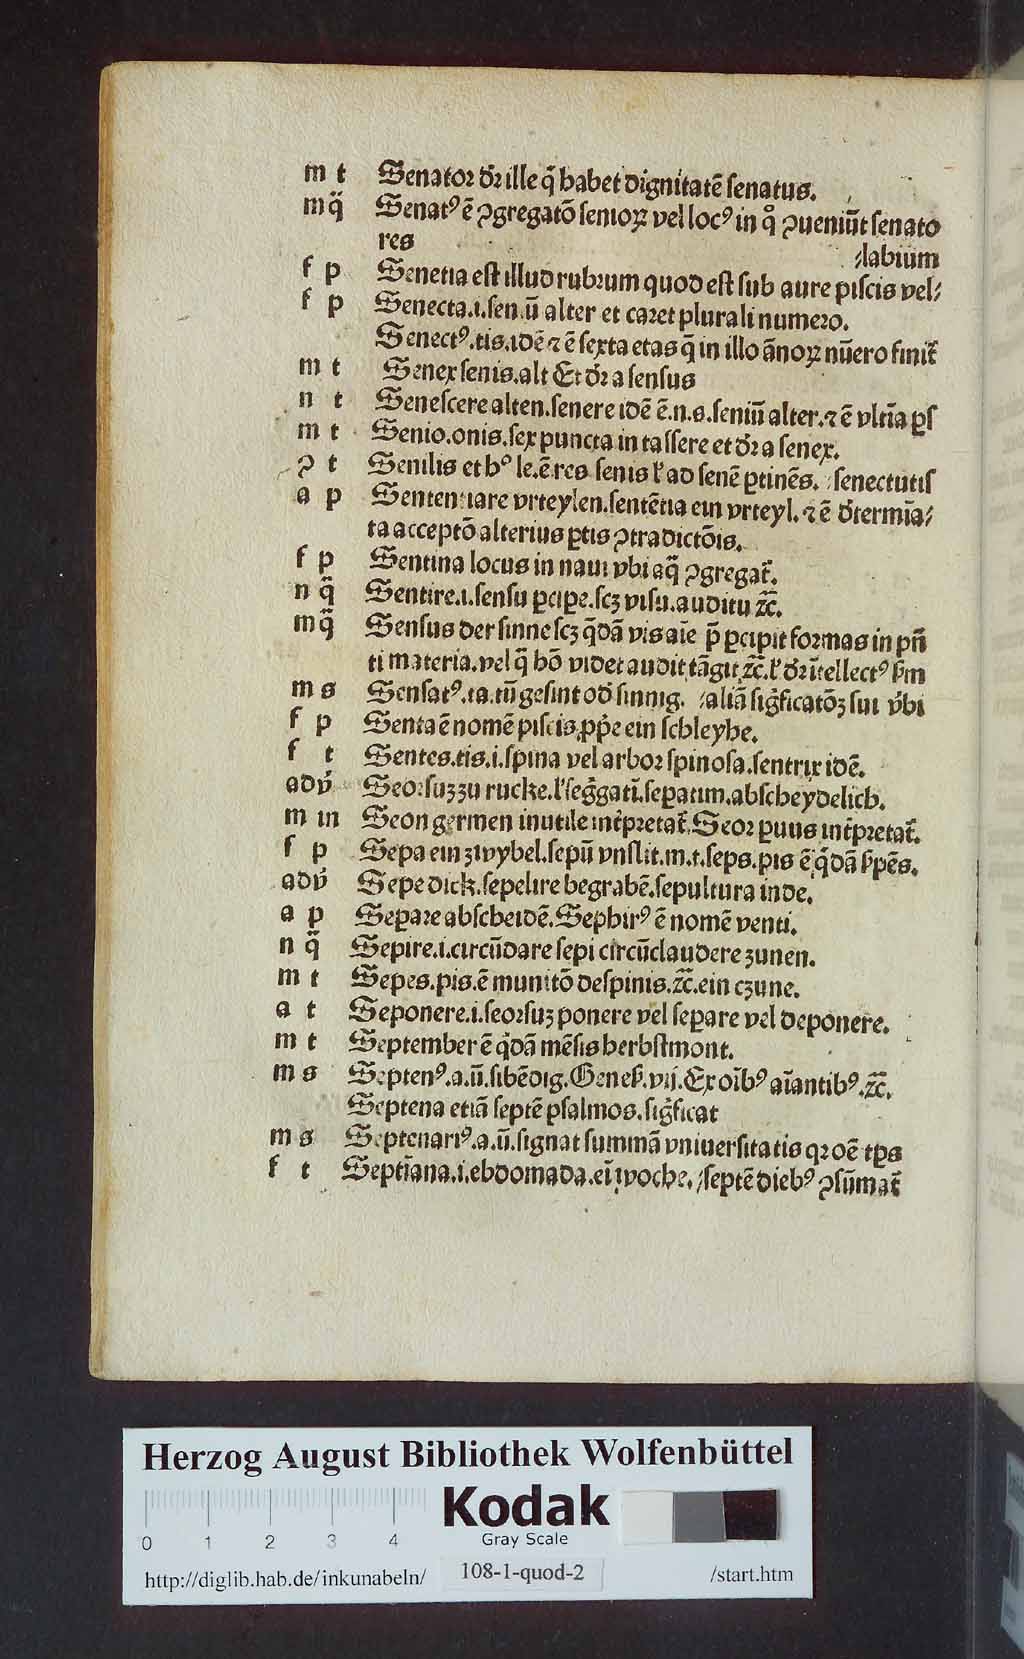 m t Senator dr̄ ille q̄ habet dignitatē ſenatus.
m q̄ Senatꝰ ē ꝯgregatō ſenioꝝ vel locꝰ in q̊ ꝯueniūt ſenato
res ⸗labium
f p Senetia eſt illud rubrum quod eſt ſub aure piſcis vel⸗
f p Senecta.i.ſen.ū alter et caret plurali numero.
Senectꝰ.tis.idē ⁊ ē ſexta etas q̄ in illo ānoꝝ nūero finit᷑
m t Senex ſenis.alt Et dr̄ a ſenſus
n t Seneſcere alten.ſenere idē ē.n.s.ſeniū alter.⁊ ē vltīa ꝑſ
m t Senio.onis.ſex puncta in taſſere et dr̄ a ſenex.
ꝯ t Senilis et hͦ le.ē res ſenis ł ad ſenē ꝑtinēs. ⸗ſenectutiſ
a p Sententiare vrteylen.ſentētia ein vrteyl.⁊ ē determīa⸗
ta acceptō alterius ꝑtis ꝯtradictōis.
f p Sentina locus in naui vbi aq̄ ꝯgregat᷑.
n q̄ Sentire.i.ſenſu ꝑciꝑe.ſcꝫ viſu.auditu ⁊c̄.
m q̄ Senſus der ſinne ſcꝫ q̄dā vis aīe p̄ ꝑcipit formas in pn̄
ti materia.vel q̄ hō videt audit tāgit ⁊c̄.ł dr̄ ītellectꝰ ẜm
m s Senſatꝰ.ta.tū geſint od̓ ſinnig. ⸗aliā ſiḡficatōꝫ ſui v̓bi
f p Senta ē nomē piſcis ꝓpe ein ſchleyhe.
f t Sentes.tis.i.ſpina vel arbor ſpinoſa.ſentrix idē.
adv̓ Seorſuꝫ zu rucke.ł ſeḡgatī.ſeꝑatim.abſcheydelich.
m in Seon germen inutile int̓pretat᷑.Seor ꝑuus int̓pretat᷑.
f p Sepa ein zwybel.ſepū vnſlit.m.t.ſeps.pis ē q̄dā ẜpēs.
adv̓ Sepe dick.ſepelire begrabē.ſepultura inde.
a p Seꝑare abſcheidē.Sephirꝰ ē nomē venti.
n q̄ Sepire.i.circūdare ſepi circūclaudere zunen.
m t Sepes.pis.ē munitō deſpinis.⁊c̄.ein czune.
a t Seponere.i.ſeorſuꝫ ponere vel ſeꝑare vel deponere.
m t September ē q̇dā mēſis herbſtmont.
m s Septenꝰ.a.ū.ſibēdig.Geneẜ.vij.Ex oībꝰ aīantibꝰ.⁊c̄.
Septena etiā ſeptē pſalmos.ſiḡficat
m s Septenariꝰ.a.ū.ſignat ſummā vniuerſitatis qꝛ oē tꝑs
f t Septīana.i.ebdomada.eī woche. ⸗ſeptē diebꝰ ꝯſūmat᷑
Herzog August Bibliothek Wolfenbüttel
Kodak
Gray Scale
0 1 2 3 4
http://diglib.hab.de/inkunabeln/ 108-1-quod-2 /start.htm